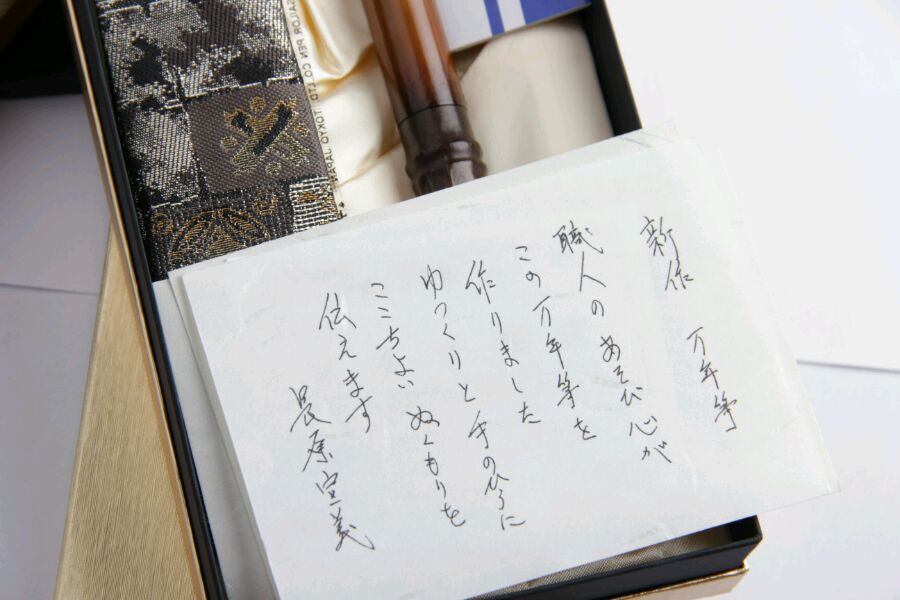 新作 万年筆
職人のあそび心が
この万年筆を
作りました
ゆっくりと手のひらに
ここちよいぬくもりを
伝えます
長原宣義
SAILOR PEN CO LTD TOKYO JAPAN